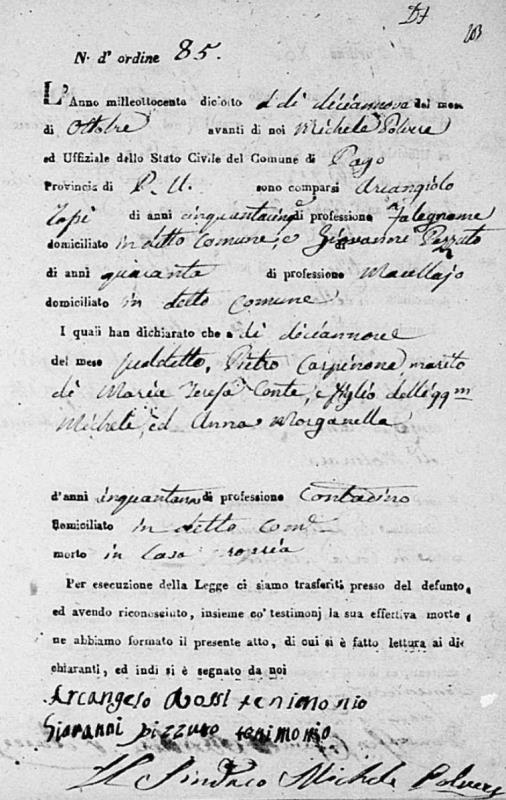 103
N. d' ordine 85.
L'Anno milleottocento diciotto a dì diciannove del mese
di Ottobre avanti di noi Michele Polvere
ed Uffiziale dello Stato Civile del Comune di Pago
Provincia di P. U. sono comparsi Arcangiolo
di anni cinquantacinq di professione Falegname
domiciliato in detto Comune, e di Giovanni Pizzuto
di anni quaranta di professione Macellajo
domiciliato in detto Comune
I quali han dichiarato che a dì diciannove
del mese suddetto, Pietro Carpinone, marito
di Maria Teresa Conte, e figlio delli qqm
Michele, ed Anna Morganella
d'anni cinquanta di professione Contadino
domiciliato in detto Com.e
morto in Casa propria
Per esecuzione della Legge ci siamo trasferiti presso del defunto,
ed avendo riconosciuto, insieme co' testimonj la sua effettiva morte,
ne abbiamo formato il presente atto, di cui si è fatto lettura ai di-
chiaranti, ed indi si è segnato da noi
Arcangelo Rossi testimonio
Giovanni Pizzuto testimonio
Il Sindaco Michele Polvere